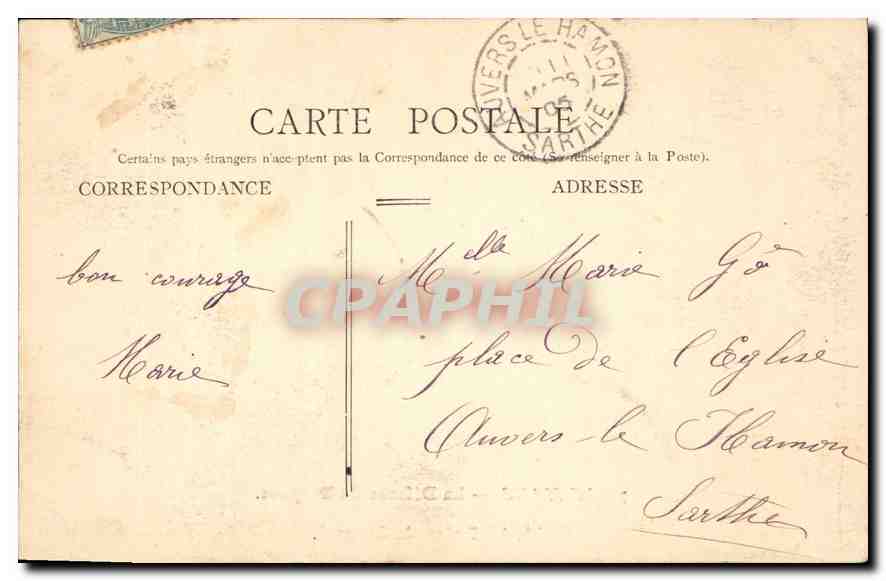 AUVERS LE HAMON
MARS
05
SARTHE
CARTE POSTALE
Certains pays étrangers n'acceptent pas la Correspondance de ce côté (Se renseigner à la Poste).
CORRESPONDANCE
ADRESSE
bon courage
Marie
Mlle Marie
place de l'Eglise
Auvers-le Hamon
Sarthe
CPAPHIL